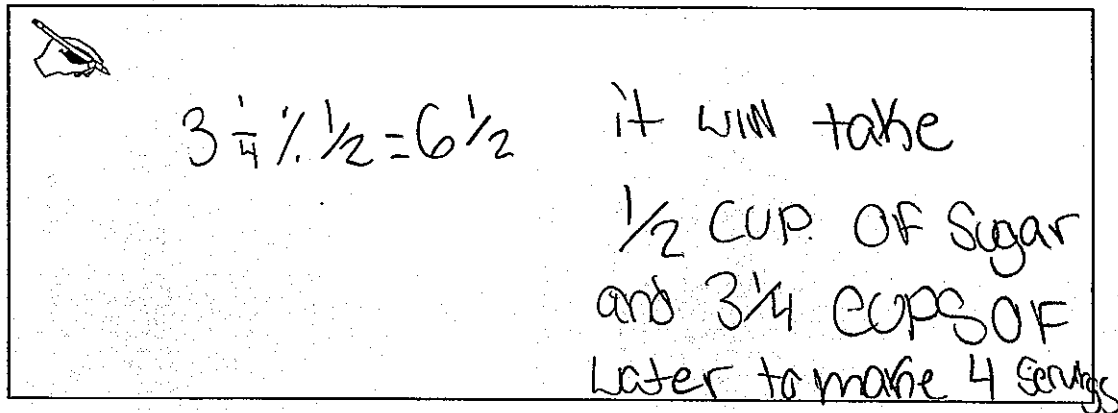 3 1/4 ÷ 1/2 = 6 1/2
it will take
1/2 cup of sugar
and 3 1/4 cups of
water to make 4 servings